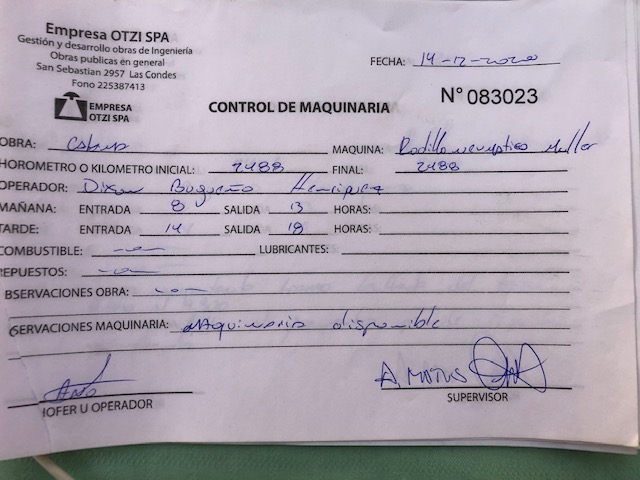 Empresa OTZI SPA
Gestión y desarrollo obras de Ingeniería
Obras publicas en general
San Sebastian 2957 Las Condes
Fono 225387413
EMPRESA
OTZI SPA
CONTROL DE MAQUINARIA
FECHA: 14-12-2020
N° 083023
OBRA: MAQUINA: Rodillo neumatico Muller
HOROMETRO O KILOMETRO INICIAL: 2488 FINAL: 2488
OPERADOR:
MAÑANA: ENTRADA 8 SALIDA 13 HORAS:
TARDE: ENTRADA 14 SALIDA 18 HORAS:
COMBUSTIBLE: --- LUBRICANTES:
EPUESTOS: ---
BSERVACIONES OBRA: ---
SERVACIONES MAQUINARIA: Maquinaria disponible
A Matus
HOFER U OPERADOR SUPERVISOR